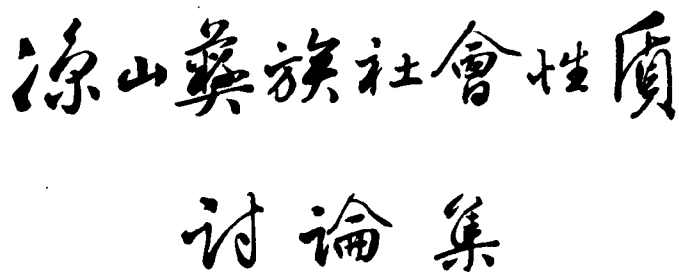 凉山彝族社會性质
讨論集